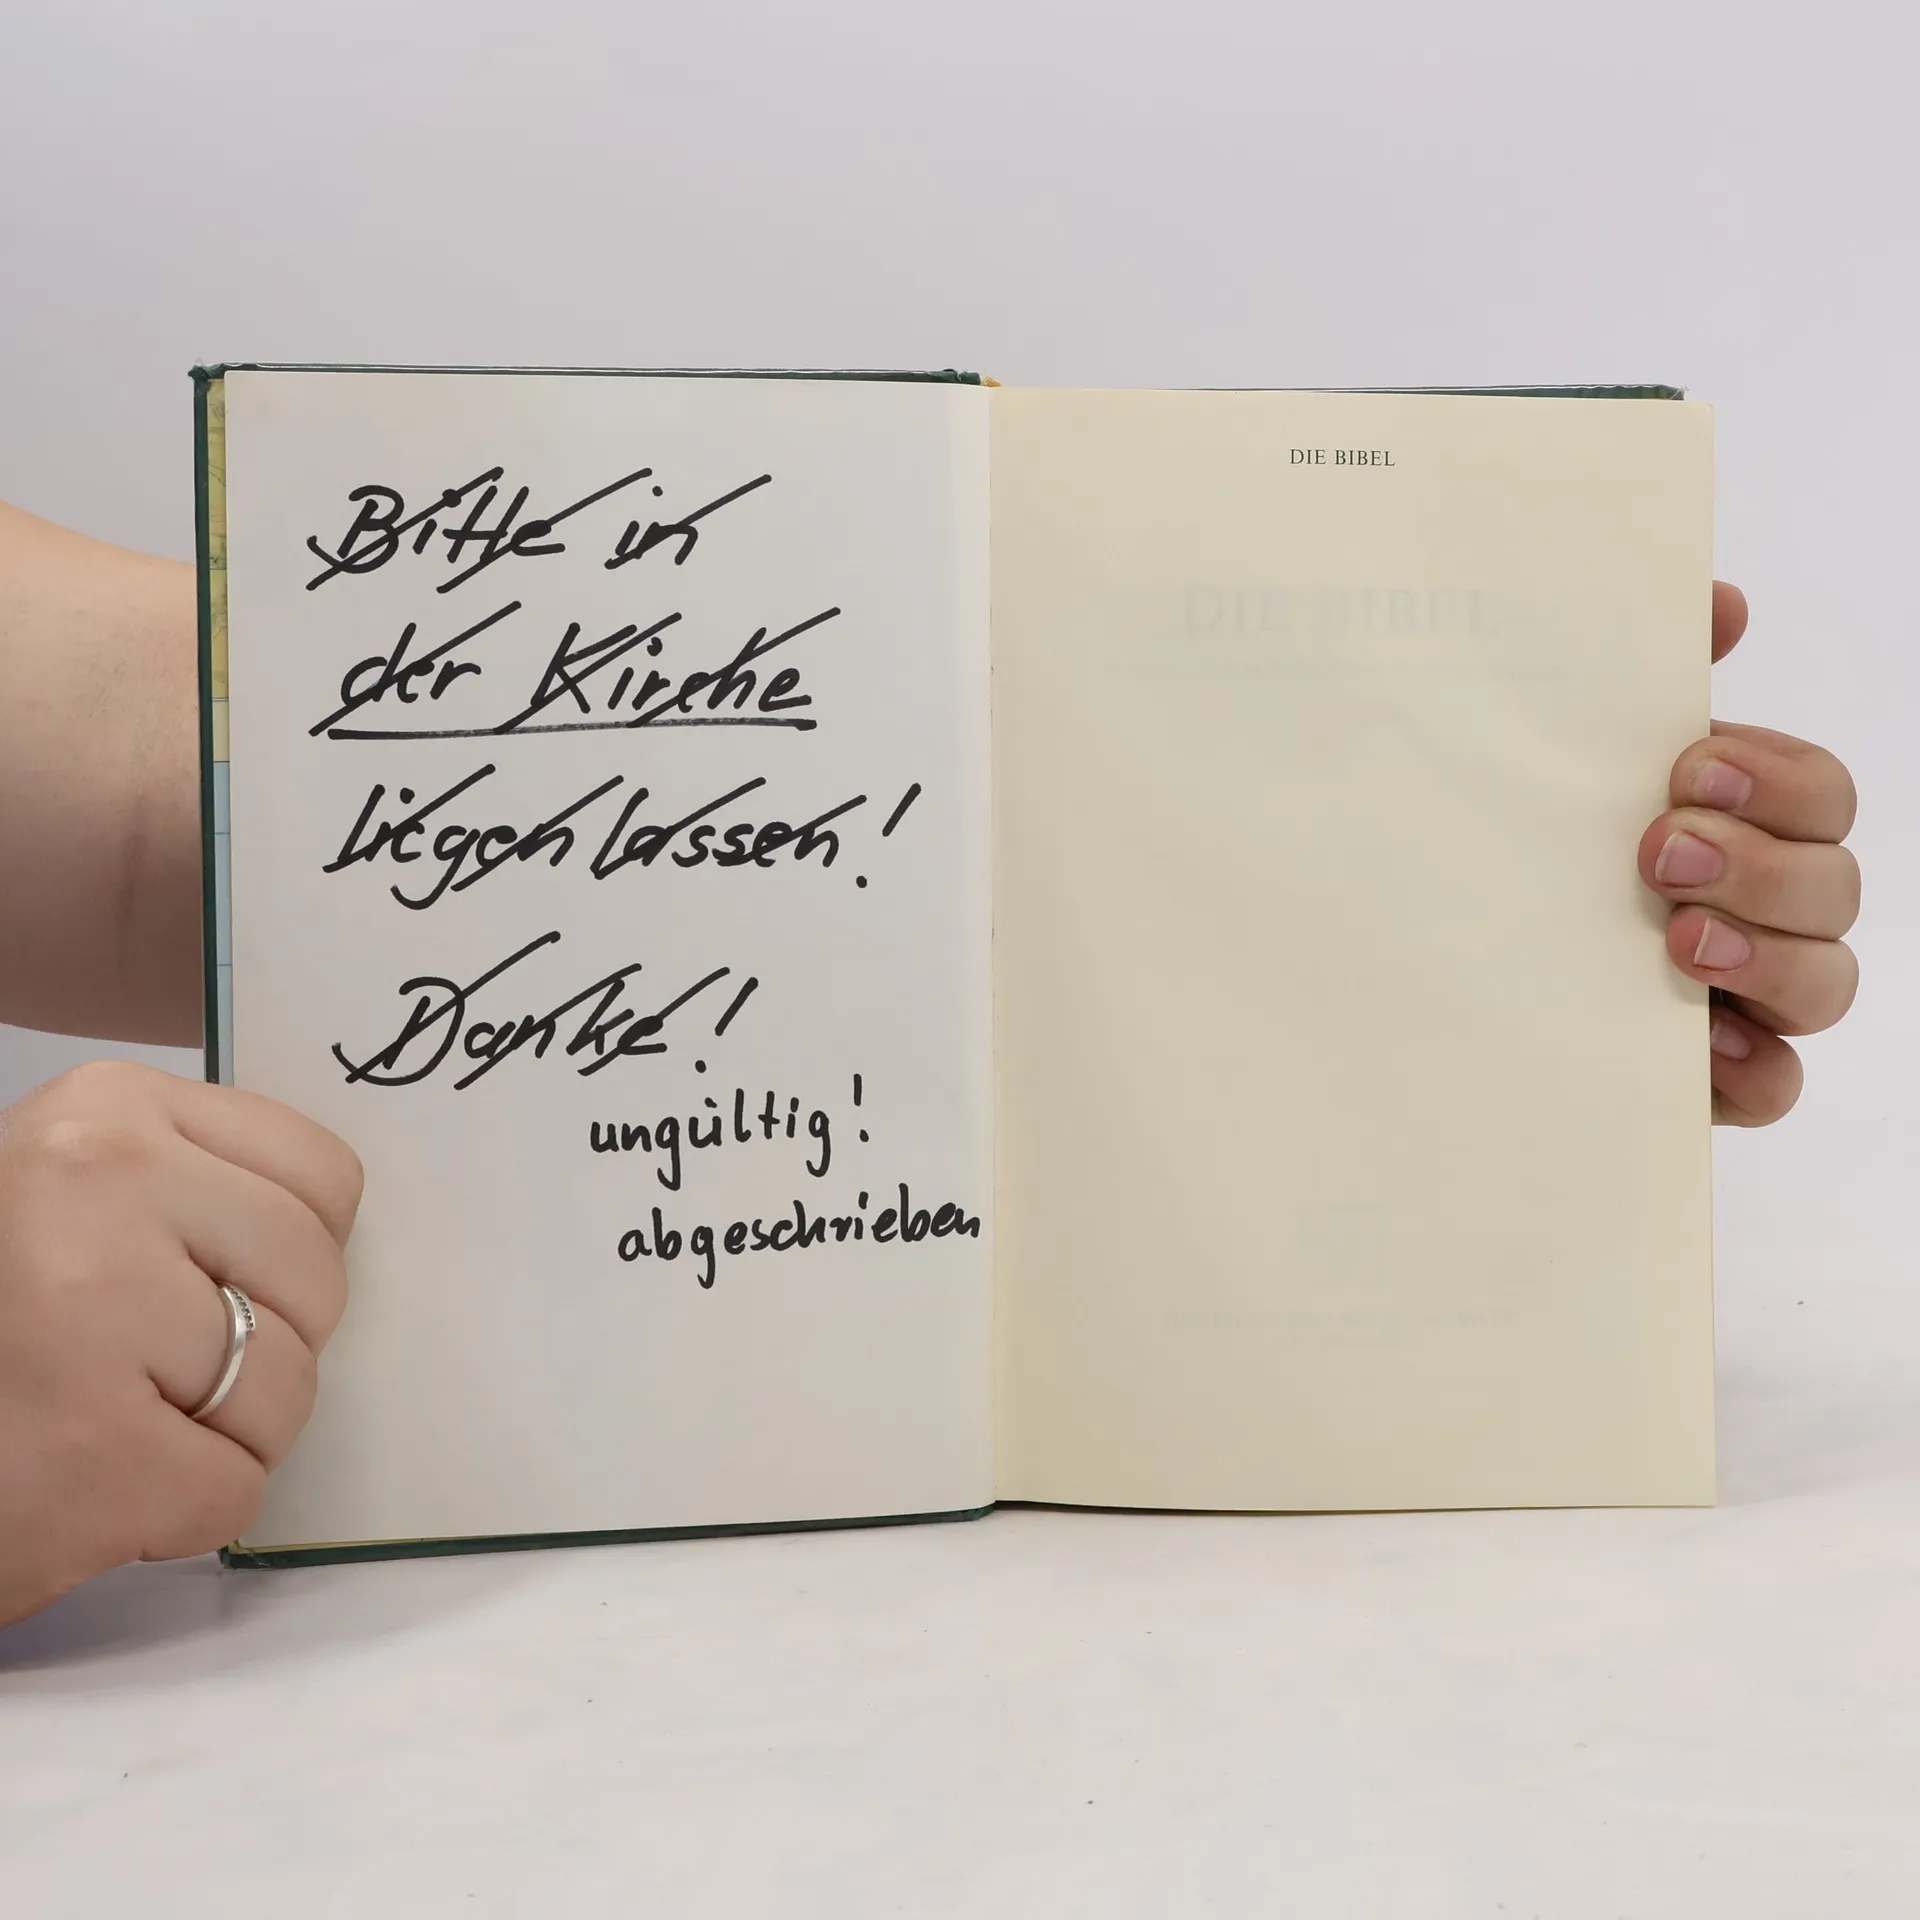 Bitte in
der Kirche
liegen lassen!
Danke!
ungültig!
abgeschrieben
DIE BIBEL
DIE BIBEL